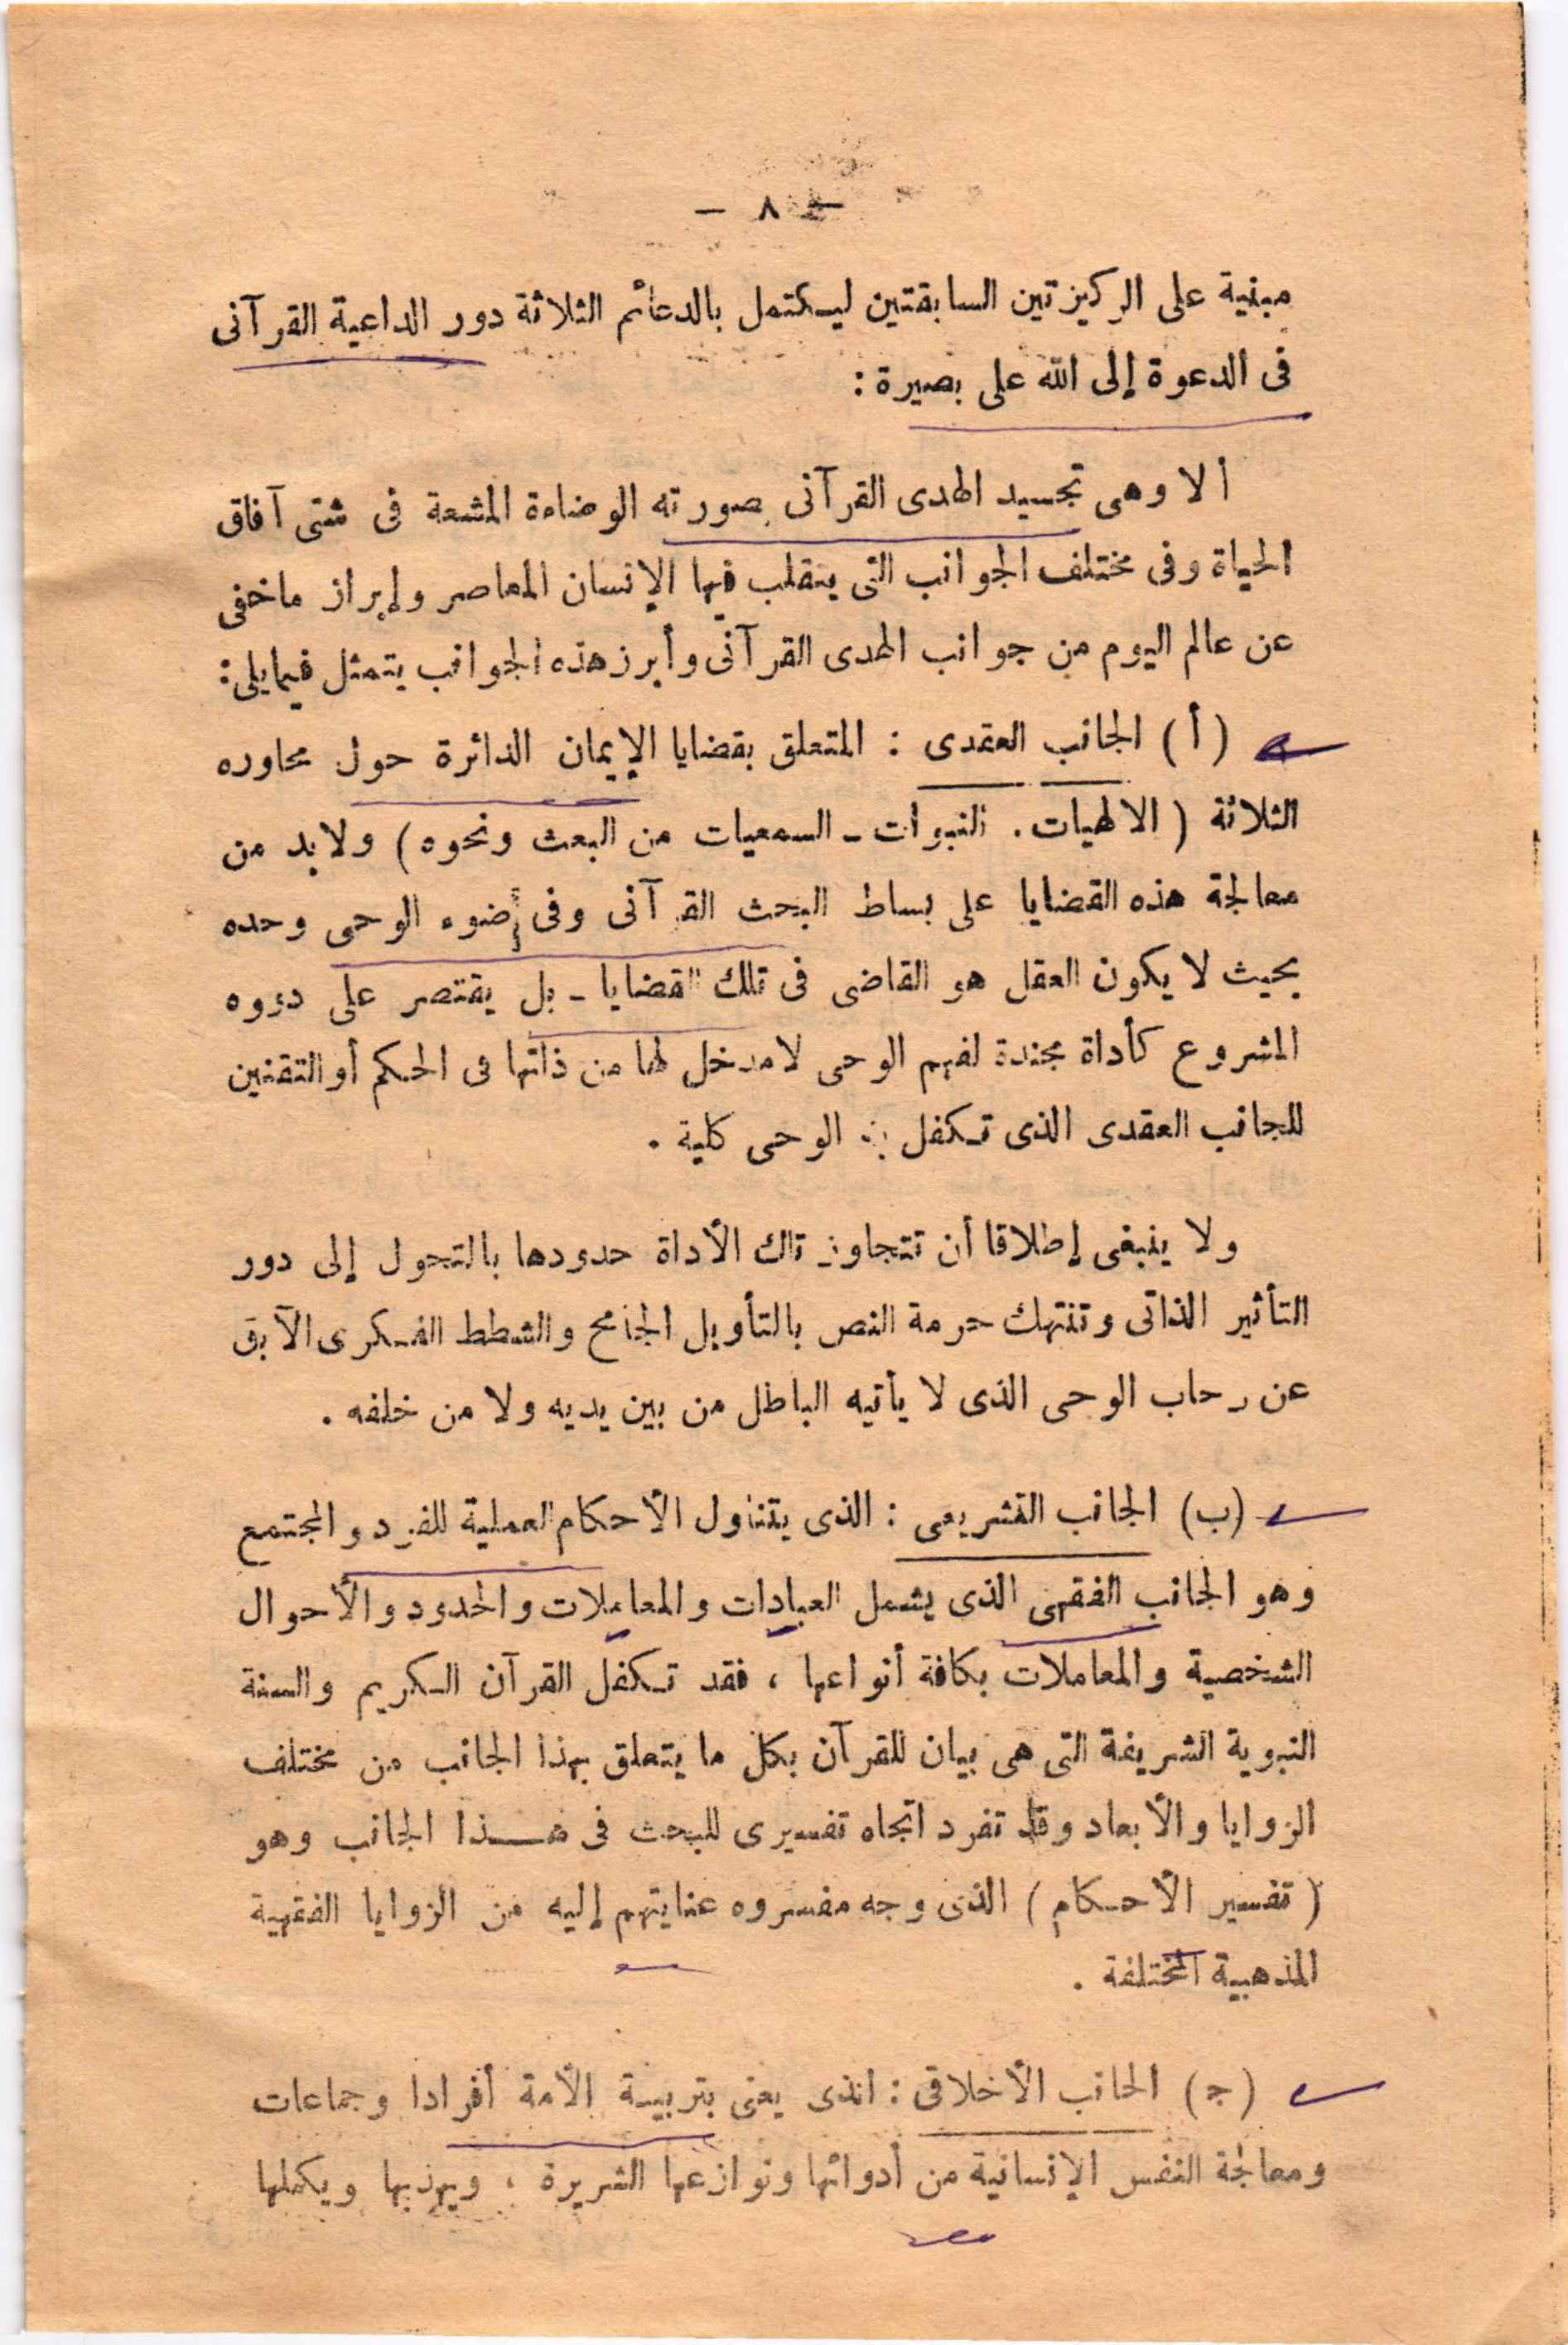 — ٨ —
مبنية على الركيزتين السابقتين ليكتمل بالدعائم الثلاثة دور الداعية القرآنى
فى الدعوة إلى الله على بصيرة :
ألا وهى تجسيد الهدى القرآنى بصورته الوضاءة المشعة فى شتى آفاق
الحياة وفى مختلف الجوانب التى يتقلب فيها الإنسان المعاصر وإبراز ماخفى
عن عالم اليوم من جوانب الهدى القرآنى وأبرز هذه الجوانب يتمثل فيمايلى :
( أ ) الجانب العقدى : المتعلق بقضايا الإيمان الدائرة حول محاوره
الثلاثة ( الالهيات . النبوات ـ السمعيات من البعث ونحوه ) ولابد من
معالجة هذه القضايا على بساط البحث القرآنى وفى ضوء الوحى وحده
بحيث لا يكون العقل هو القاضى فى تلك القضايا ـ بل يقتصر على دوره
المشروع كأداة مجندة لفهم الوحى لامدخل لها من ذاتها فى الحكم أو التقنين
للجانب العقدى الذى تكفل به الوحى كلية .
ولا ينبغى إطلاقا أن تتجاوز تلك الأداة حدودها بالتحول إلى دور
التأثير الذاتى وتنتهك حرمة النص بالتأويل الجامح والشطط الفكرى الآبق
عن رحاب الوحى الذى لا يأتيه الباطل من بين يديه ولا من خلفه .
(ب) الجانب التشريعى : الذى يتناول الأحكام العملية للفرد والمجتمع
وهو الجانب الفقهى الذى يشمل العبادات والمعاملات والحدود والأحوال
الشخصية والمعاملات بكافة أنواعها ، فقد تكفل القرآن الكريم والسنة
النبوية الشريفة التى هى بيان للقرآن بكل ما يتعلق بهذا الجانب من مختلف
الزوايا والأبعاد وقد تفرد اتجاه تفسيرى للبحث فى هذا الجانب وهو
( تفسير الأحكام ) الذى وجه مفسروه عنايتهم إليه من الزوايا الفقهية
المذهبية المختلفة .
(ج) الجانب الأخلاقى : الذى يعنى بتربية الأمة أفرادا وجماعات
ومعالجة النفس الإنسانية من أدوائها ونوازعها الشريرة ، ويهذبها ويكملها